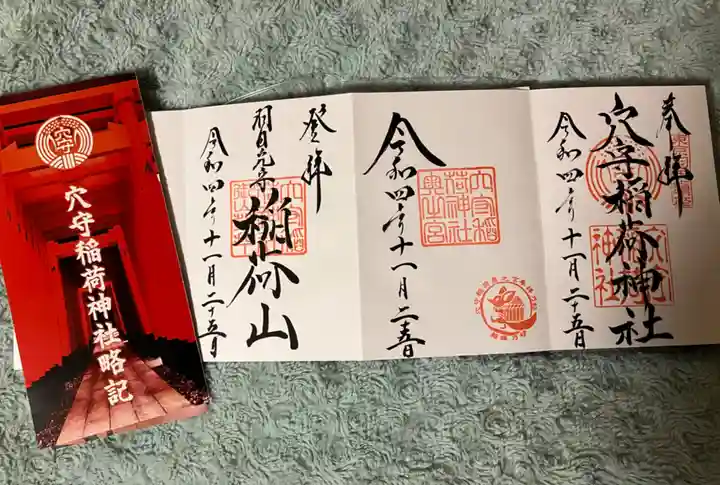 穴守
穴守稲荷神社略記
奉拝
穴守稲荷神社
令和四年十一月二十五日
穴守稲
荷神社
奥之宮
令和四年十一月二五日
登拝
稲荷山
令和四年十一月二十五日
穴守稲荷
神社